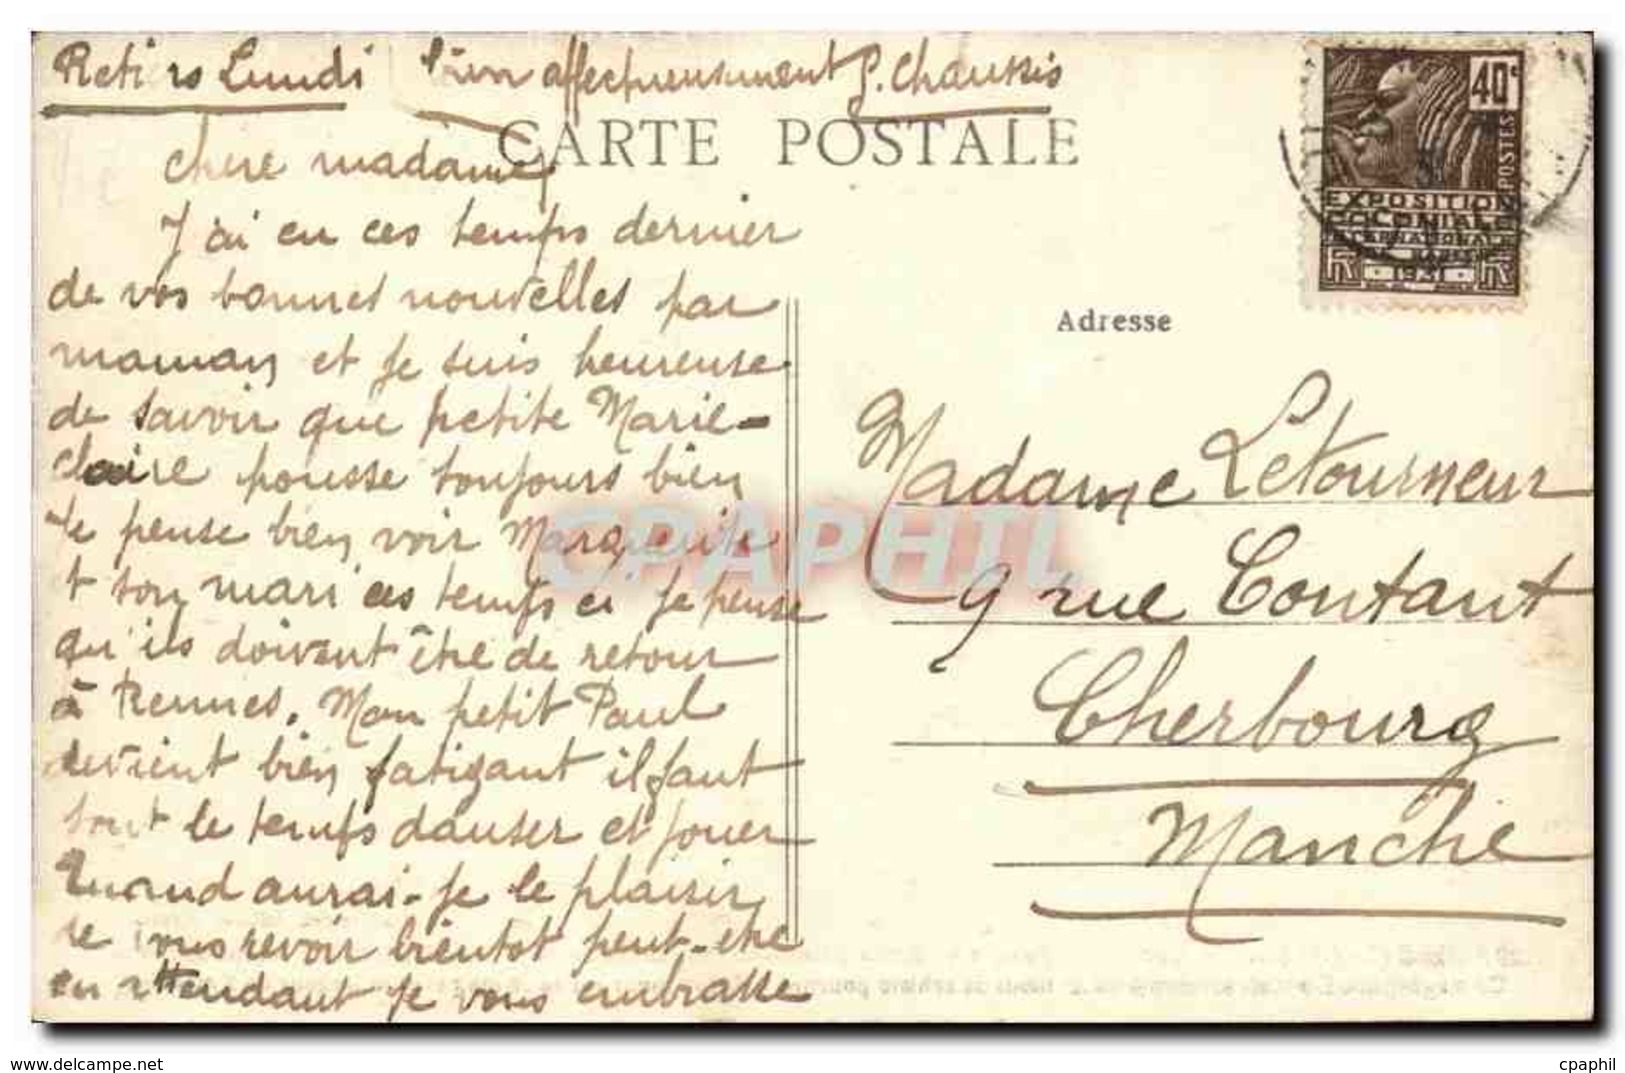 Retiers Lundi bien affectueusement G. Chaussis
CARTE POSTALE
chere madame
J'ai eu ces temps dernier
de vos bonnes nouvelles par
maman et je suis heureuse
de savoir que petite Marie-
claire pousse toujours bien
Je pense bien voir Marguerite
et son mari ces temps ci je pense
qu'ils doivent être de retour
à Rennes. Mon petit Paul
devient bien fatigant il faut
tout le temps danser et jouer
Quand aurai-je le plaisir
de vous revoir bientot peut-etre
en attendant je vous embrasse
40c
POSTES
EXPOSITION
COLONIALE
INTERNATIONALE
PARIS
1931
Adresse
Madame Letourneur
9 rue Contant
Cherbourg
Manche
CPAPHIL
www.delcampe.net
cpaphil